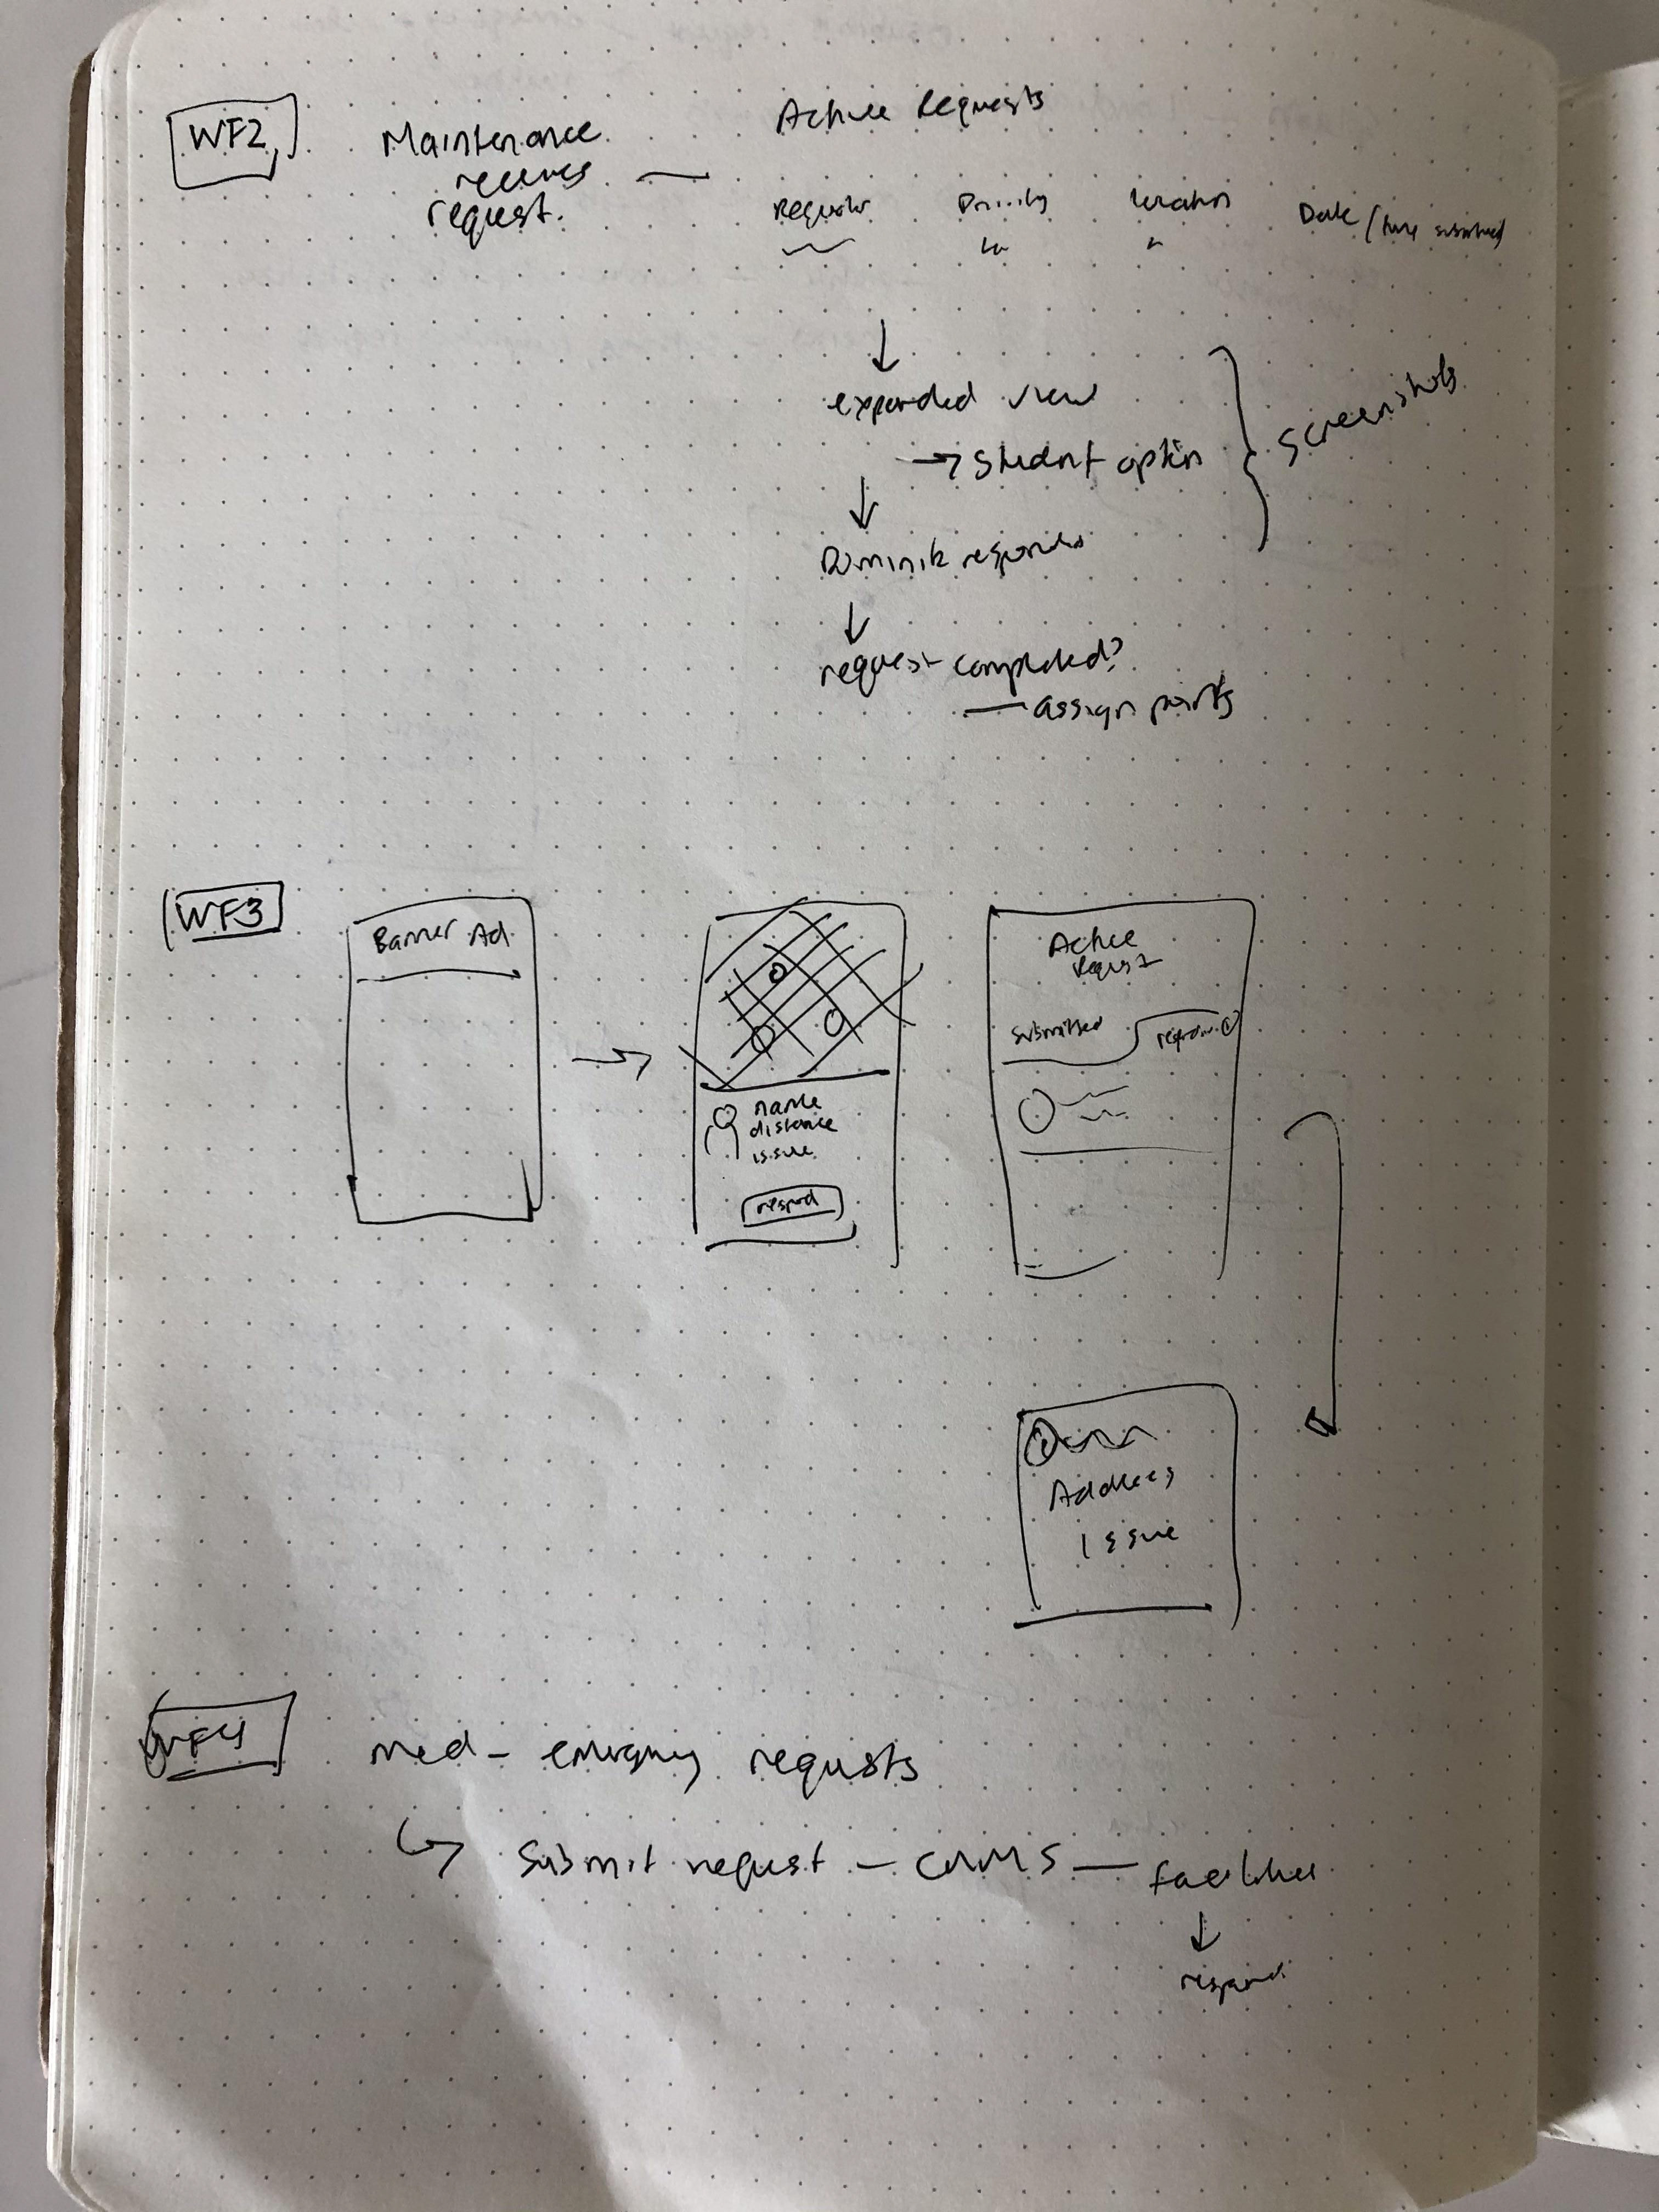 WF2
Maintenance
receives
request.
Active Requests
Requestor Priority location Date / time submitted
expanded view
→ Student option
Screenshots
Dominik responds
request completed?
— assign points
WF3
Banner Ad
name
distance
issue
respond
Active
Request
Submitted
Address
Issue
WF4
med - emergency requests
Submit request — CMMS — facilities
respond